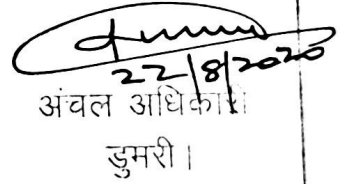 22/8/2020
अंचल अधिकारी
डुमरी।